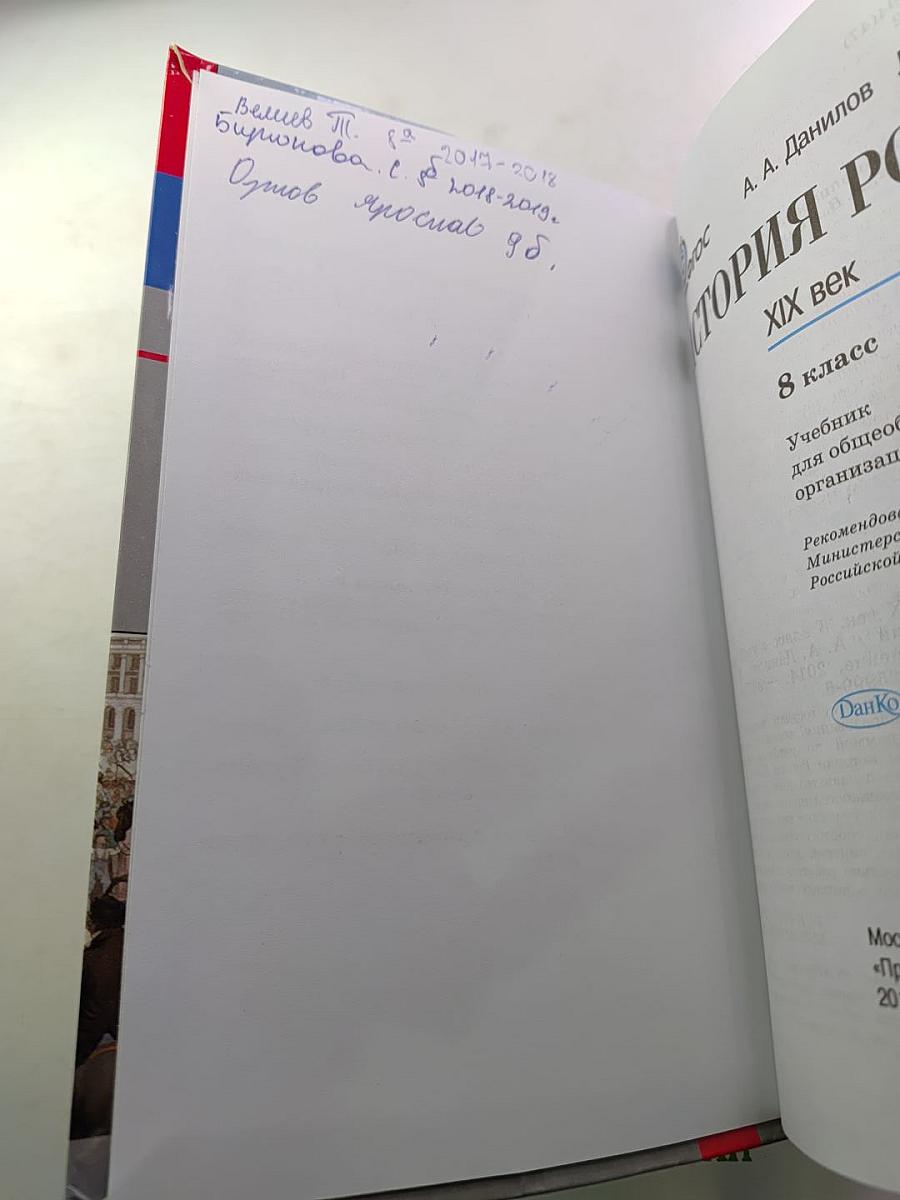 Велиев Т. 8а 2017-2018
Бирюкова. С. 8б 2018-2019г.
Ярослав 9б.
А. А. Данилов
ФГОС
СТОРИЯ РО
XIX век
8 класс
Учебник
для общеоб
организац
Рекомендов
Министерс
Российской
ДанКо
Мос
«Пр
20